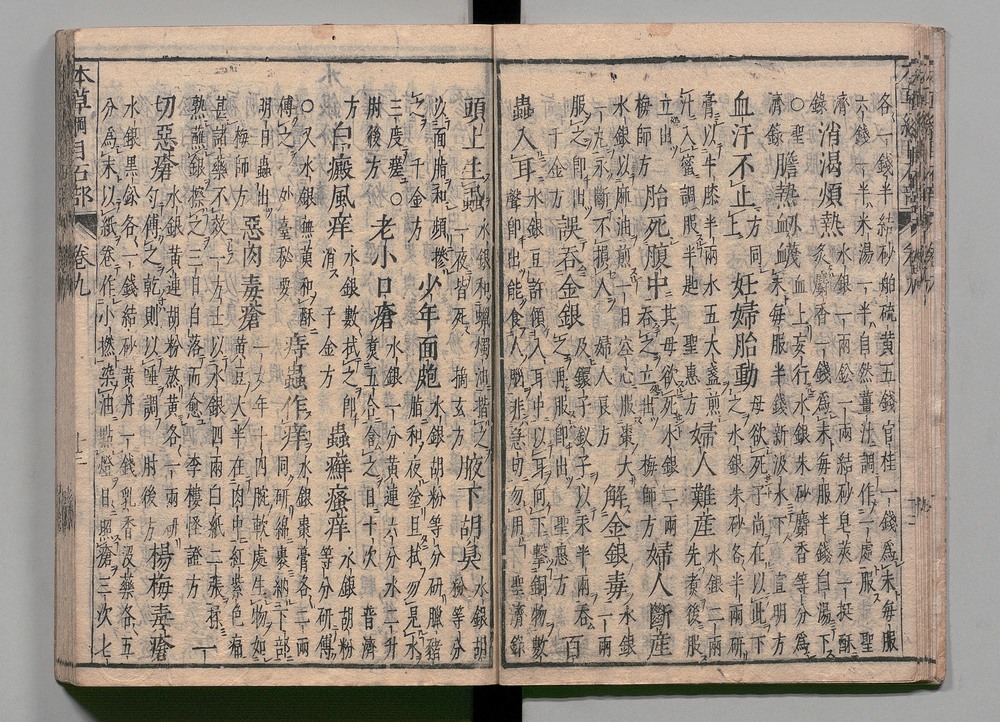 各一錢半結砂舶硫黃五錢官桂一錢爲末每服
六錢一半米湯一半自然薑汁調作一處服聖
濟錄 消渴煩熱 水銀一兩鉛一兩結砂皂莢一挺酥
炙麝香一錢爲末每服半錢白湯下
○聖濟錄 膽熱衄衊 血上妄行水銀朱砂麝香等分爲
末每服半錢新汲水下 宣明方
血汗不止 方同上 妊婦胎動 母欲死子尚在以此下
之水銀朱砂各半兩研
膏以牛膝半兩水五大盞煎
汁入蜜調服半匙 聖惠方 婦人難產 水銀二兩先煮後服
立出 梅師方 胎死腹中 其母欲死水銀二兩
吞之立出 梅師方 婦人斷產
水銀以麻油煎一日空心服棗大
一丸永斷不損人 婦人良方 解金銀毒 水銀一兩
服之即出 千金方 誤吞金銀 及鐶子釵子以汞半兩吞
之再服即出 聖惠方 百
蟲入耳 水銀豆許傾入耳中以耳向下擊銅物數
聲即出能食人腦非急切勿用 聖濟錄
頭上生蝨 水銀和蠟燭油揩之
一夜皆死 摘玄方 腋下胡臭 水銀胡粉等分
以面脂和頻摻
之 千金方 少年面皰 水銀胡粉等分研臘豬
脂和夜塗旦拭勿見水
三度瘥○肘後方 老小口瘡 水銀一分黃連六分水二升
煮五合含之日十次 普濟
方 白癜風痒 水銀數拭之即
消 千金方 蟲癬瘙痒 水銀胡粉等分研傅
○又水銀蕪荑和酥
傅之 外臺秘要 痔蟲作痒 水銀棗膏各二兩
同研綿裹納下部
明日蟲出 梅師方 惡肉毒瘡 一女年十四腕軟處生物如
黃豆大半在肉中紅紫色痛
甚諸藥不效一方士以水銀四兩白紙二張揉
熟蘸銀擦之三日自落而愈 李樓怪證方 一
切惡瘡 水銀黃連胡粉熬黃各一兩研
勻傅之乾則以唾調 肘後方 楊梅毒瘡
水銀黑鉛各一錢結砂黃丹一錢乳香沒藥各五
分爲末以紙卷作小撚染油點燈日照瘡三次七
本草綱目石部 卷九